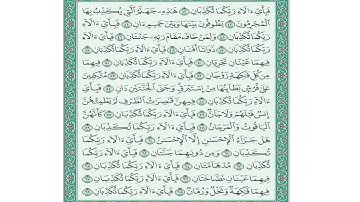 فَبِأَيِّ ءَالَآءِ رَبِّكُمَا تُكَذِّبَانِ ۝ هَـٰذِهِۦ جَهَنَّمُ ٱلَّتِى يُكَذِّبُ بِهَا
ٱلْمُجْرِمُونَ ۝ يَطُوفُونَ بَيْنَهَا وَبَيْنَ حَمِيمٍ ءَانٍ ۝
فَبِأَيِّ ءَالَآءِ رَبِّكُمَا تُكَذِّبَانِ ۝ وَلِمَنْ خَافَ مَقَامَ رَبِّهِۦ جَنَّتَانِ ۝
فَبِأَيِّ ءَالَآءِ رَبِّكُمَا تُكَذِّبَانِ ۝ ذَوَاتَآ أَفْنَانٍ ۝ فَبِأَيِّ ءَالَآءِ رَبِّكُمَا تُكَذِّبَانِ ۝
فِيهِمَا عَيْنَانِ تَجْرِيَانِ ۝ فَبِأَيِّ ءَالَآءِ رَبِّكُمَا تُكَذِّبَانِ ۝ فِيهِمَا
مِن كُلِّ فَـٰكِهَةٍ زَوْجَانِ ۝ فَبِأَيِّ ءَالَآءِ رَبِّكُمَا تُكَذِّبَانِ ۝ مُتَّكِـِٔينَ
عَلَىٰ فُرُشٍۭ بَطَآئِنُهَا مِنْ إِسْتَبْرَقٍ وَجَنَى ٱلْجَنَّتَيْنِ دَانٍ ۝ فَبِأَيِّ
ءَالَآءِ رَبِّكُمَا تُكَذِّبَانِ ۝ فِيهِنَّ قَـٰصِرَٰتُ ٱلطَّرْفِ لَمْ يَطْمِثْهُنَّ
إِنسٌ قَبْلَهُمْ وَلَا جَآنٌّ ۝ فَبِأَيِّ ءَالَآءِ رَبِّكُمَا تُكَذِّبَانِ ۝ كَأَنَّهُنَّ
ٱلْيَاقُوتُ وَٱلْمَرْجَانُ ۝ فَبِأَيِّ ءَالَآءِ رَبِّكُمَا تُكَذِّبَانِ ۝
هَلْ جَزَآءُ ٱلْإِحْسَـٰنِ إِلَّا ٱلْإِحْسَـٰنُ ۝ فَبِأَيِّ ءَالَآءِ رَبِّكُمَا
تُكَذِّبَانِ ۝ وَمِن دُونِهِمَا جَنَّتَانِ ۝ فَبِأَيِّ ءَالَآءِ رَبِّكُمَا
تُكَذِّبَانِ ۝ مُدْهَآمَّتَانِ ۝ فَبِأَيِّ ءَالَآءِ رَبِّكُمَا تُكَذِّبَانِ ۝
فِيهِمَا عَيْنَانِ نَضَّاخَتَانِ ۝ فَبِأَيِّ ءَالَآءِ رَبِّكُمَا تُكَذِّبَانِ ۝
فِيهِمَا فَـٰكِهَةٌ وَنَخْلٌ وَرُمَّانٌ ۝ فَبِأَيِّ ءَالَآءِ رَبِّكُمَا تُكَذِّبَانِ ۝